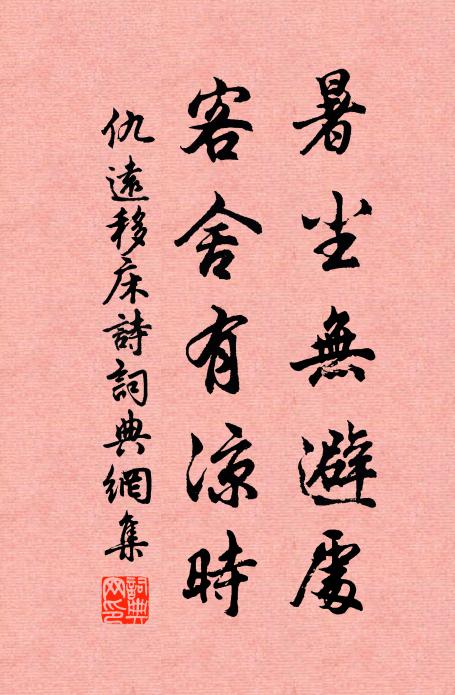 暑尘無避處
客舍有涼時
仇遠移床詩詞典網集
詞典网印